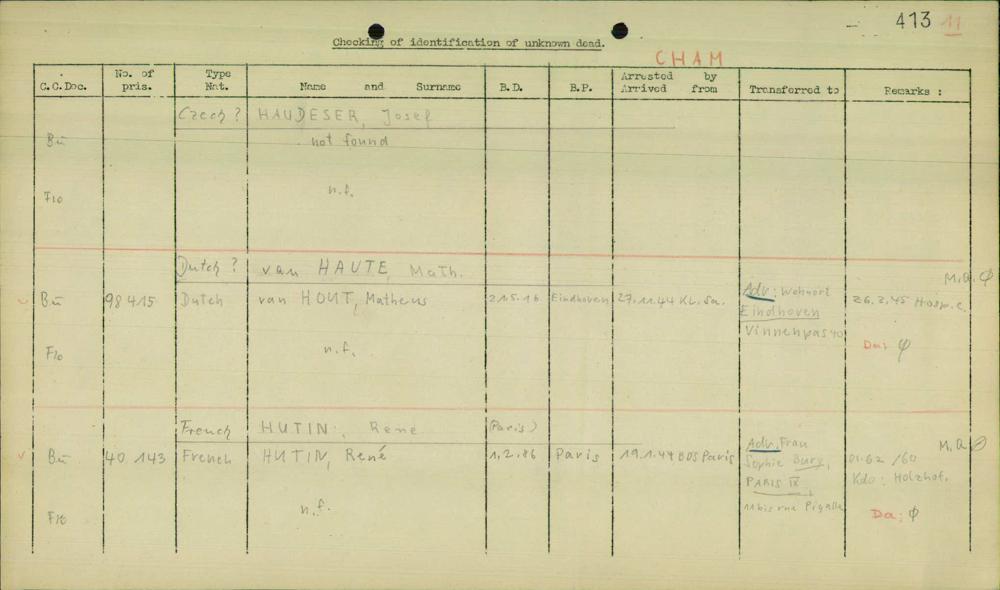 473 11
Checking of identification of unknown dead.
CHAM
C.C.Doc. No. of pris. Type Nat. Name and Surname B.D. B.P. Arrested by Arrived from Transferred to Remarks :
Czech ? HAUDESER, Josef
Bu not found
Flo n.f.
Dutch ? van HAUTE, Math.
M.Q. φ
Bu 98 415 Dutch van HOUT, Matheus 21.5.16 Eindhoven 27.11.44 KL.Sa. Adr: Wohnort 26.2.45 Hosp.
Eindhoven
Vinnenpas 40
Flo n.f. Da: φ
French HUTIN, René (Paris)
M.Q. φ
Bu 40 143 French HUTIN, René 1.2.86 Paris 19.1.44 BDS Paris Adr. Frau
Sophie Bury,
PARIS IX,
11 bis rue Pigalle
Kdo: Holzhof.
Flo n.f. Da: φ